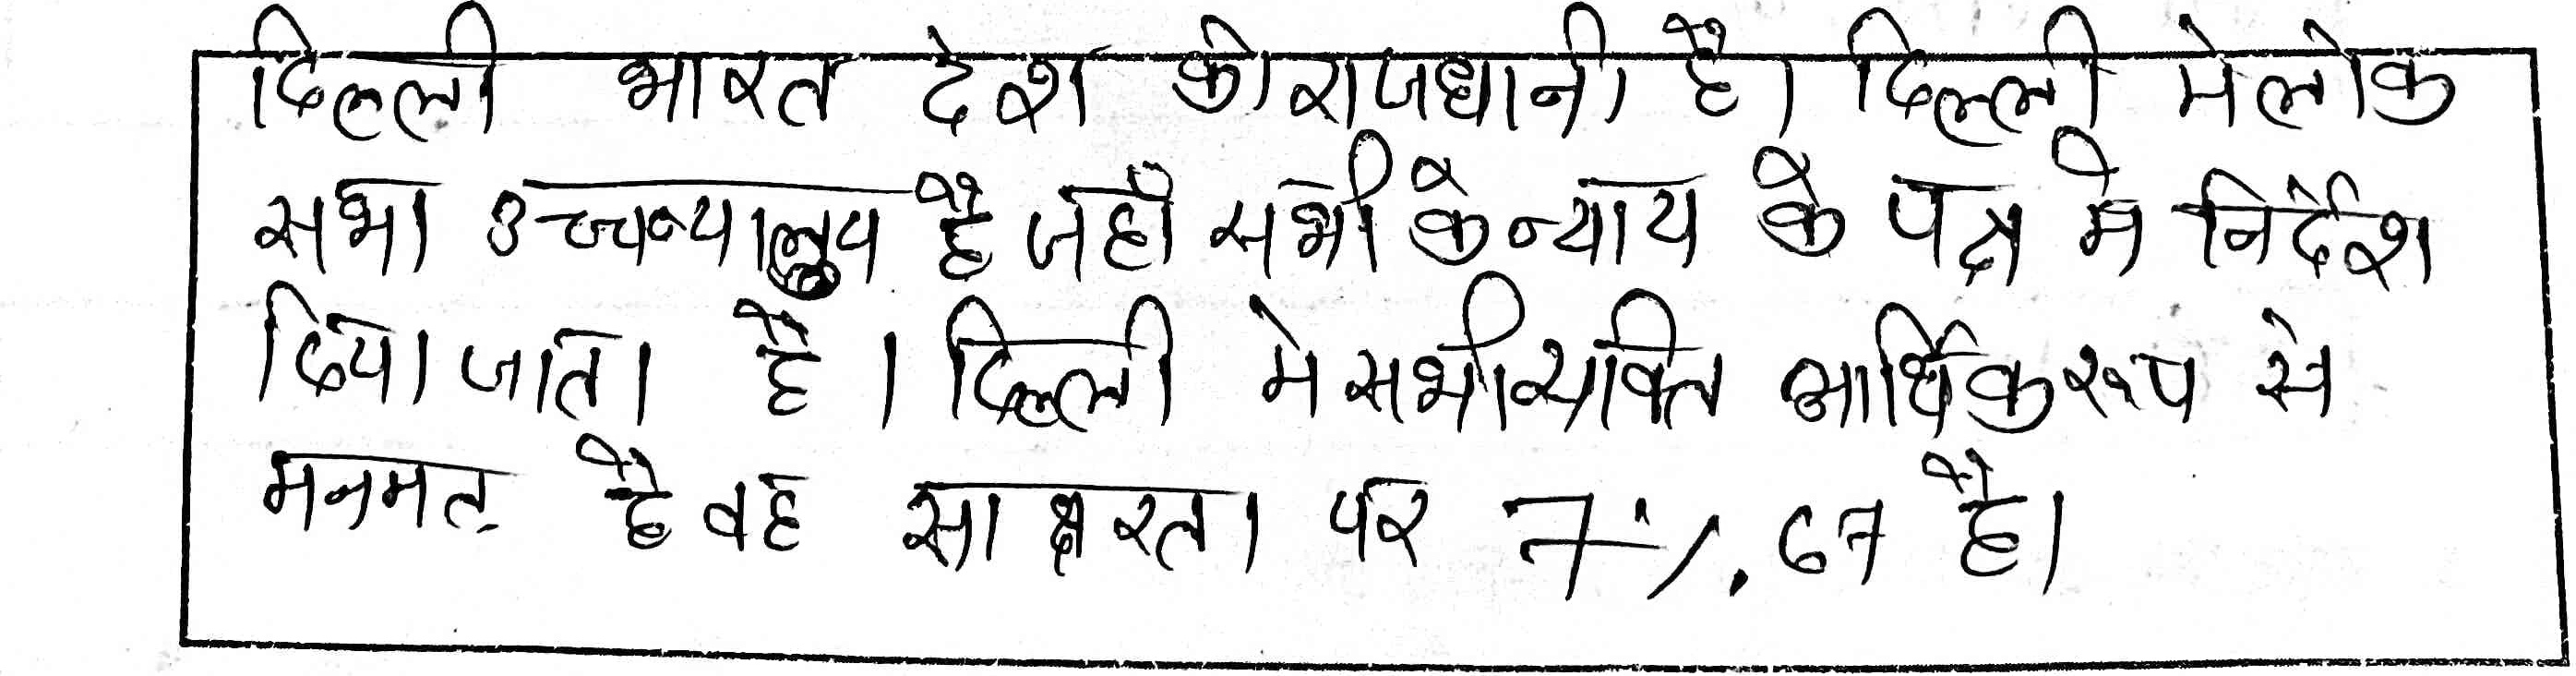 दिल्ली भारत देश की राजधानी है। दिल्ली मे लोक
सभा उच्चन्यालय है जहाँ सभी के न्याय के पक्ष मे निर्देश
दिया जाता है। दिल्ली मे सभी व्यक्ति आर्थिक रूप से
मनमत है वह साक्षरता पर 7%.67 है।